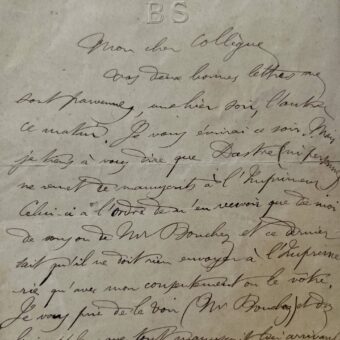 BS
Mon cher Collègue
vos deux bonnes lettres me
sont parvenues, une hier soir, l'autre
ce matin. Je vous écrirai ce soir. Mais
je tiens à vous dire que Dastre (ni personne)
ne remet de manuscrits à l'Imprimeur
Celui-ci a l'ordre de n'en recevoir que de moi
de son son de Mr Bouchez et ce dernier
sait qu'il ne doit rien envoyer à l'Imprime
rie qu'avec mon consentement ou le vôtre.
Je vous prie de le voir (Mr Bouchez) et
tout manuscrit